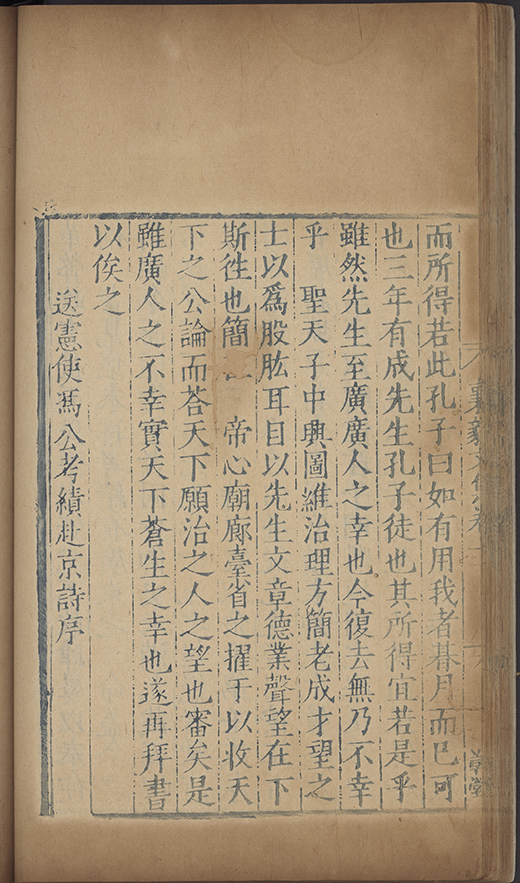 襄毅文集卷
而所得若此孔子曰如有用我者朞月而已可
也三年有成先生孔子徒也其所得宜若是乎
雖然先生至廣廣人之幸也今復去無乃不幸
乎　聖天子中興圖維治理方簡老成才望之
士以爲股肱耳目以先生文章德業聲望在下
斯徃也簡　帝心廟廊臺省之擢于以收天
下之公論而荅天下願治之人之望也審矣是
雖廣人之不幸實天下蒼生之幸也遂再拜書
以俟之
送憲使馮公考績赴京詩序